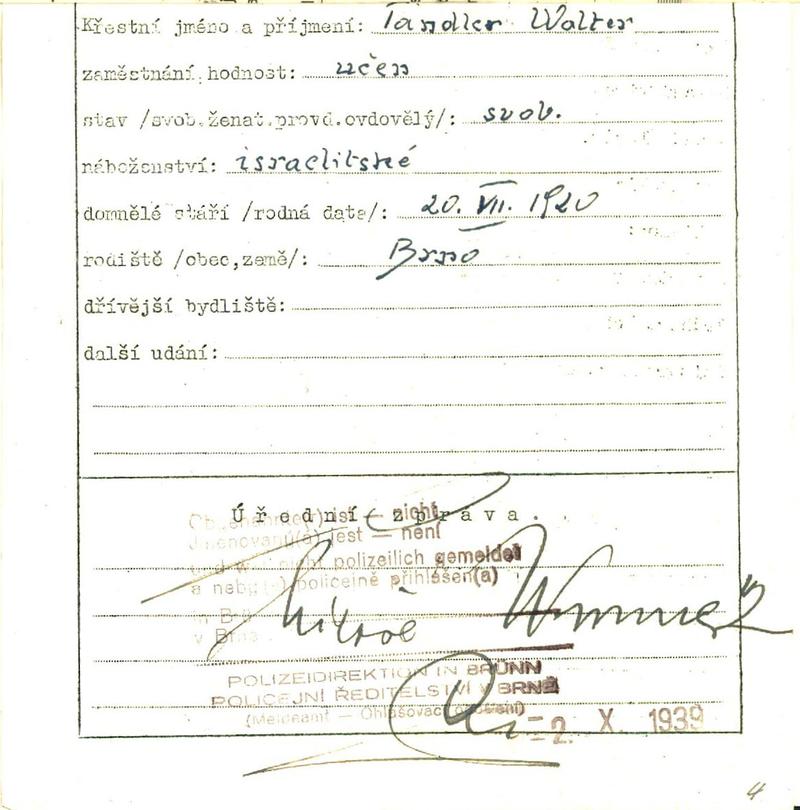 Křestní jméno a příjmení: Tandler Walter
zaměstnání, hodnost: učen
stav /svob.ženat.provd.ovdovělý/: svob.
náboženství: israelitské
domnělé stáří /rodná data/: 20. VII. 1920
rodiště /obec,země/: Brno
dřívější bydliště:
další udání:
Úřední zpráva.
Obgenannte(r) ist — nicht
Jmenovaný(á) jest — není
und war nicht polizeilich gemeldet
a nebyl(-) policejně přihlášen(a)
in B
v Brně
POLIZEIDIREKTION IN BRÜNN
POLICEJNÍ ŘEDITELSTVÍ V BRNĚ
(Meldeamt — Ohlašovací oddělení)
2. X. 1939
4